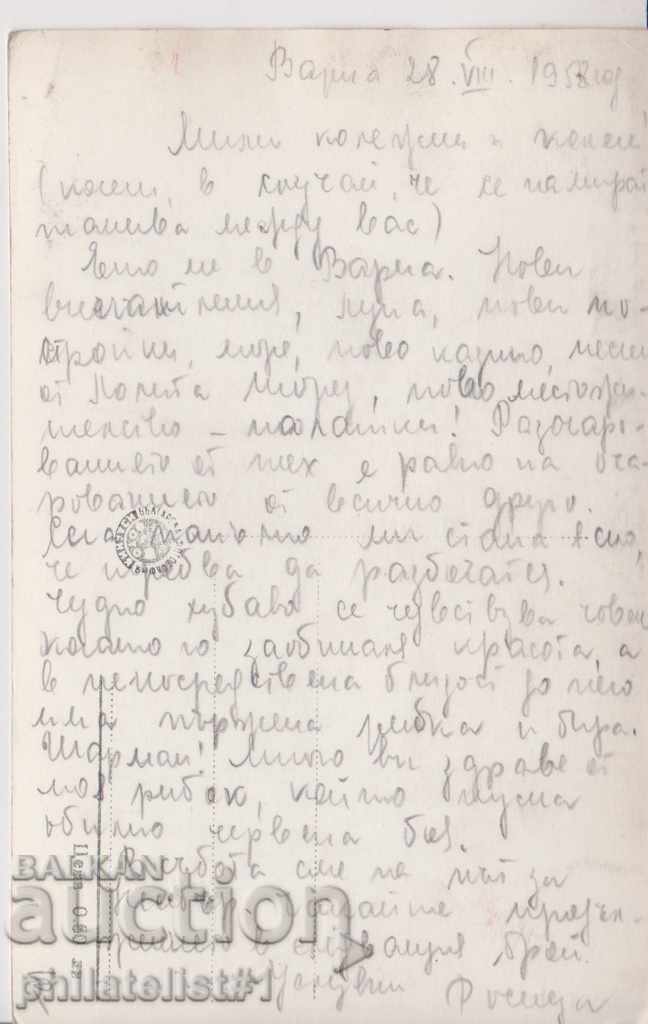 Варна 28.VIII.1958 год
Мили колежки и колеги
(колеги, в случай, че се намират
такива между вас)
Ето ме в Варна. Нови
впечатления, луна, нови по-
стройки, море, ново казино, песни
от морето, ново местожи-
телство – палатки! Разочаро-
ванието от тях е равно на оча-
рованието от всичко друго.
Сега напълно ми стана ясно,
че трябва да разбогатея.
Чудно хубаво се чувствува човек
когато го заобикаля красота, а
в непосредствена близост до него
има пържена рибка и бира.
Шарман! Много ви здраве от
моя рибок, който пуска
обилно червена боя.
В събота сме на път за
очаквайте продъл-
жение в следващия брой.
Целувки Росица
Цена 0.60 лв
BALKAN
auction
philatelist#1